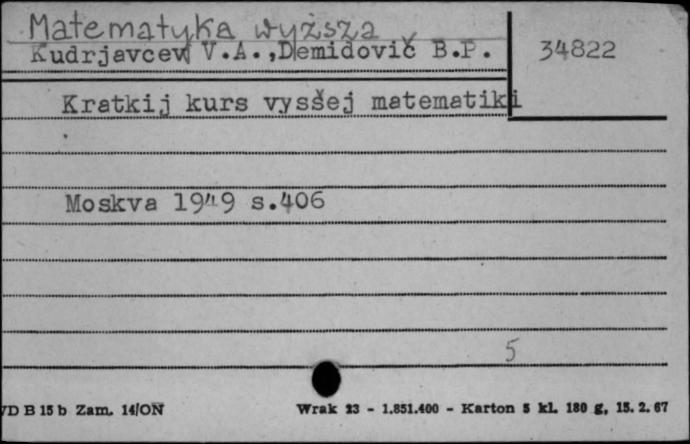 Matematyka wyższa
Kudrjavcew V.A.,Demidovič B.P.
34822
Kratkij kurs vysšej matematiki
Moskva 1949 s.406
5
VD B 15 b Zam. 14/ON
Wrak 23 - 1.851.400 - Karton 5 kl. 180 g, 15. 2. 67